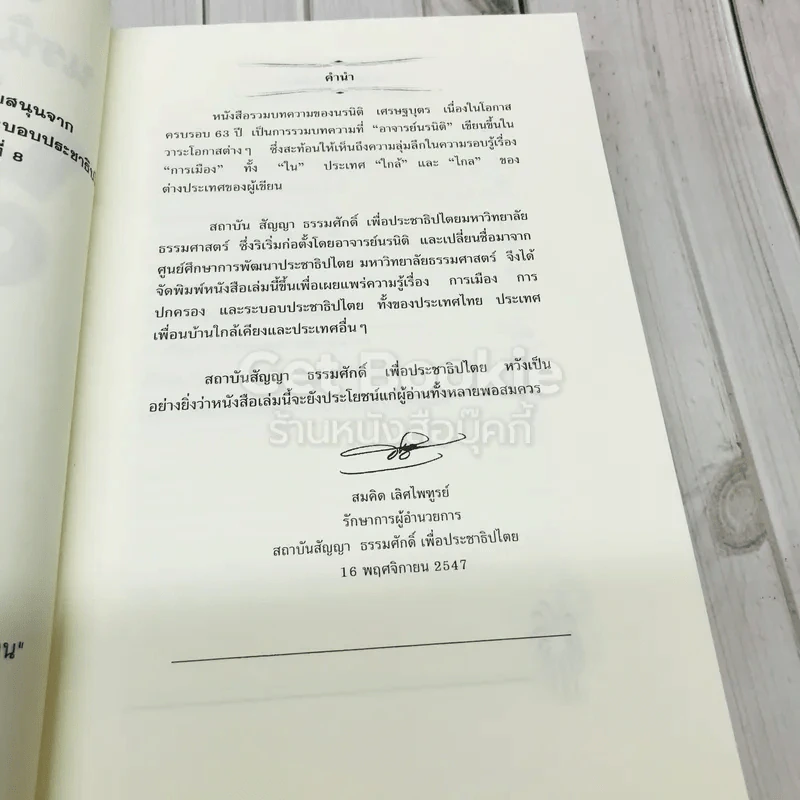 นรนิ
สนุนจาก
ะบอบประชาธิป
ที่ 8
น"
คำนำ
หนังสือรวมบทความของนรนิติ เศรษฐบุตร เนื่องในโอกาส
ครบรอบ 63 ปี เป็นการรวมบทความที่ "อาจารย์นรนิติ" เขียนขึ้นใน
วาระโอกาสต่างๆ ซึ่งสะท้อนให้เห็นถึงความลุ่มลึกในความรอบรู้เรื่อง
"การเมือง" ทั้ง "ใน" ประเทศ "ใกล้" และ "ไกล" ของ
ต่างประเทศของผู้เขียน
สถาบัน สัญญา ธรรมศักดิ์ เพื่อประชาธิปไตยมหาวิทยาลัย
ธรรมศาสตร์ ซึ่งริเริ่มก่อตั้งโดยอาจารย์นรนิติ และเปลี่ยนชื่อมาจาก
ศูนย์ศึกษาการพัฒนาประชาธิปไตย มหาวิทยาลัยธรรมศาสตร์ จึงได้
จัดพิมพ์หนังสือเล่มนี้ขึ้นเพื่อเผยแพร่ความรู้เรื่อง การเมือง การ
ปกครอง และระบอบประชาธิปไตย ทั้งของประเทศไทย ประเทศ
เพื่อนบ้านใกล้เคียงและประเทศอื่นๆ
สถาบันสัญญา ธรรมศักดิ์ เพื่อประชาธิปไตย หวังเป็น
อย่างยิ่งว่าหนังสือเล่มนี้จะยังประโยชน์แก่ผู้อ่านทั้งหลายพอสมควร
Get Bookie
ร้านหนังสือบุ๊คกี้
สมคิด เลิศไพฑูรย์
รักษาการผู้อำนวยการ
สถาบันสัญญา ธรรมศักดิ์ เพื่อประชาธิปไตย
16 พฤศจิกายน 2547